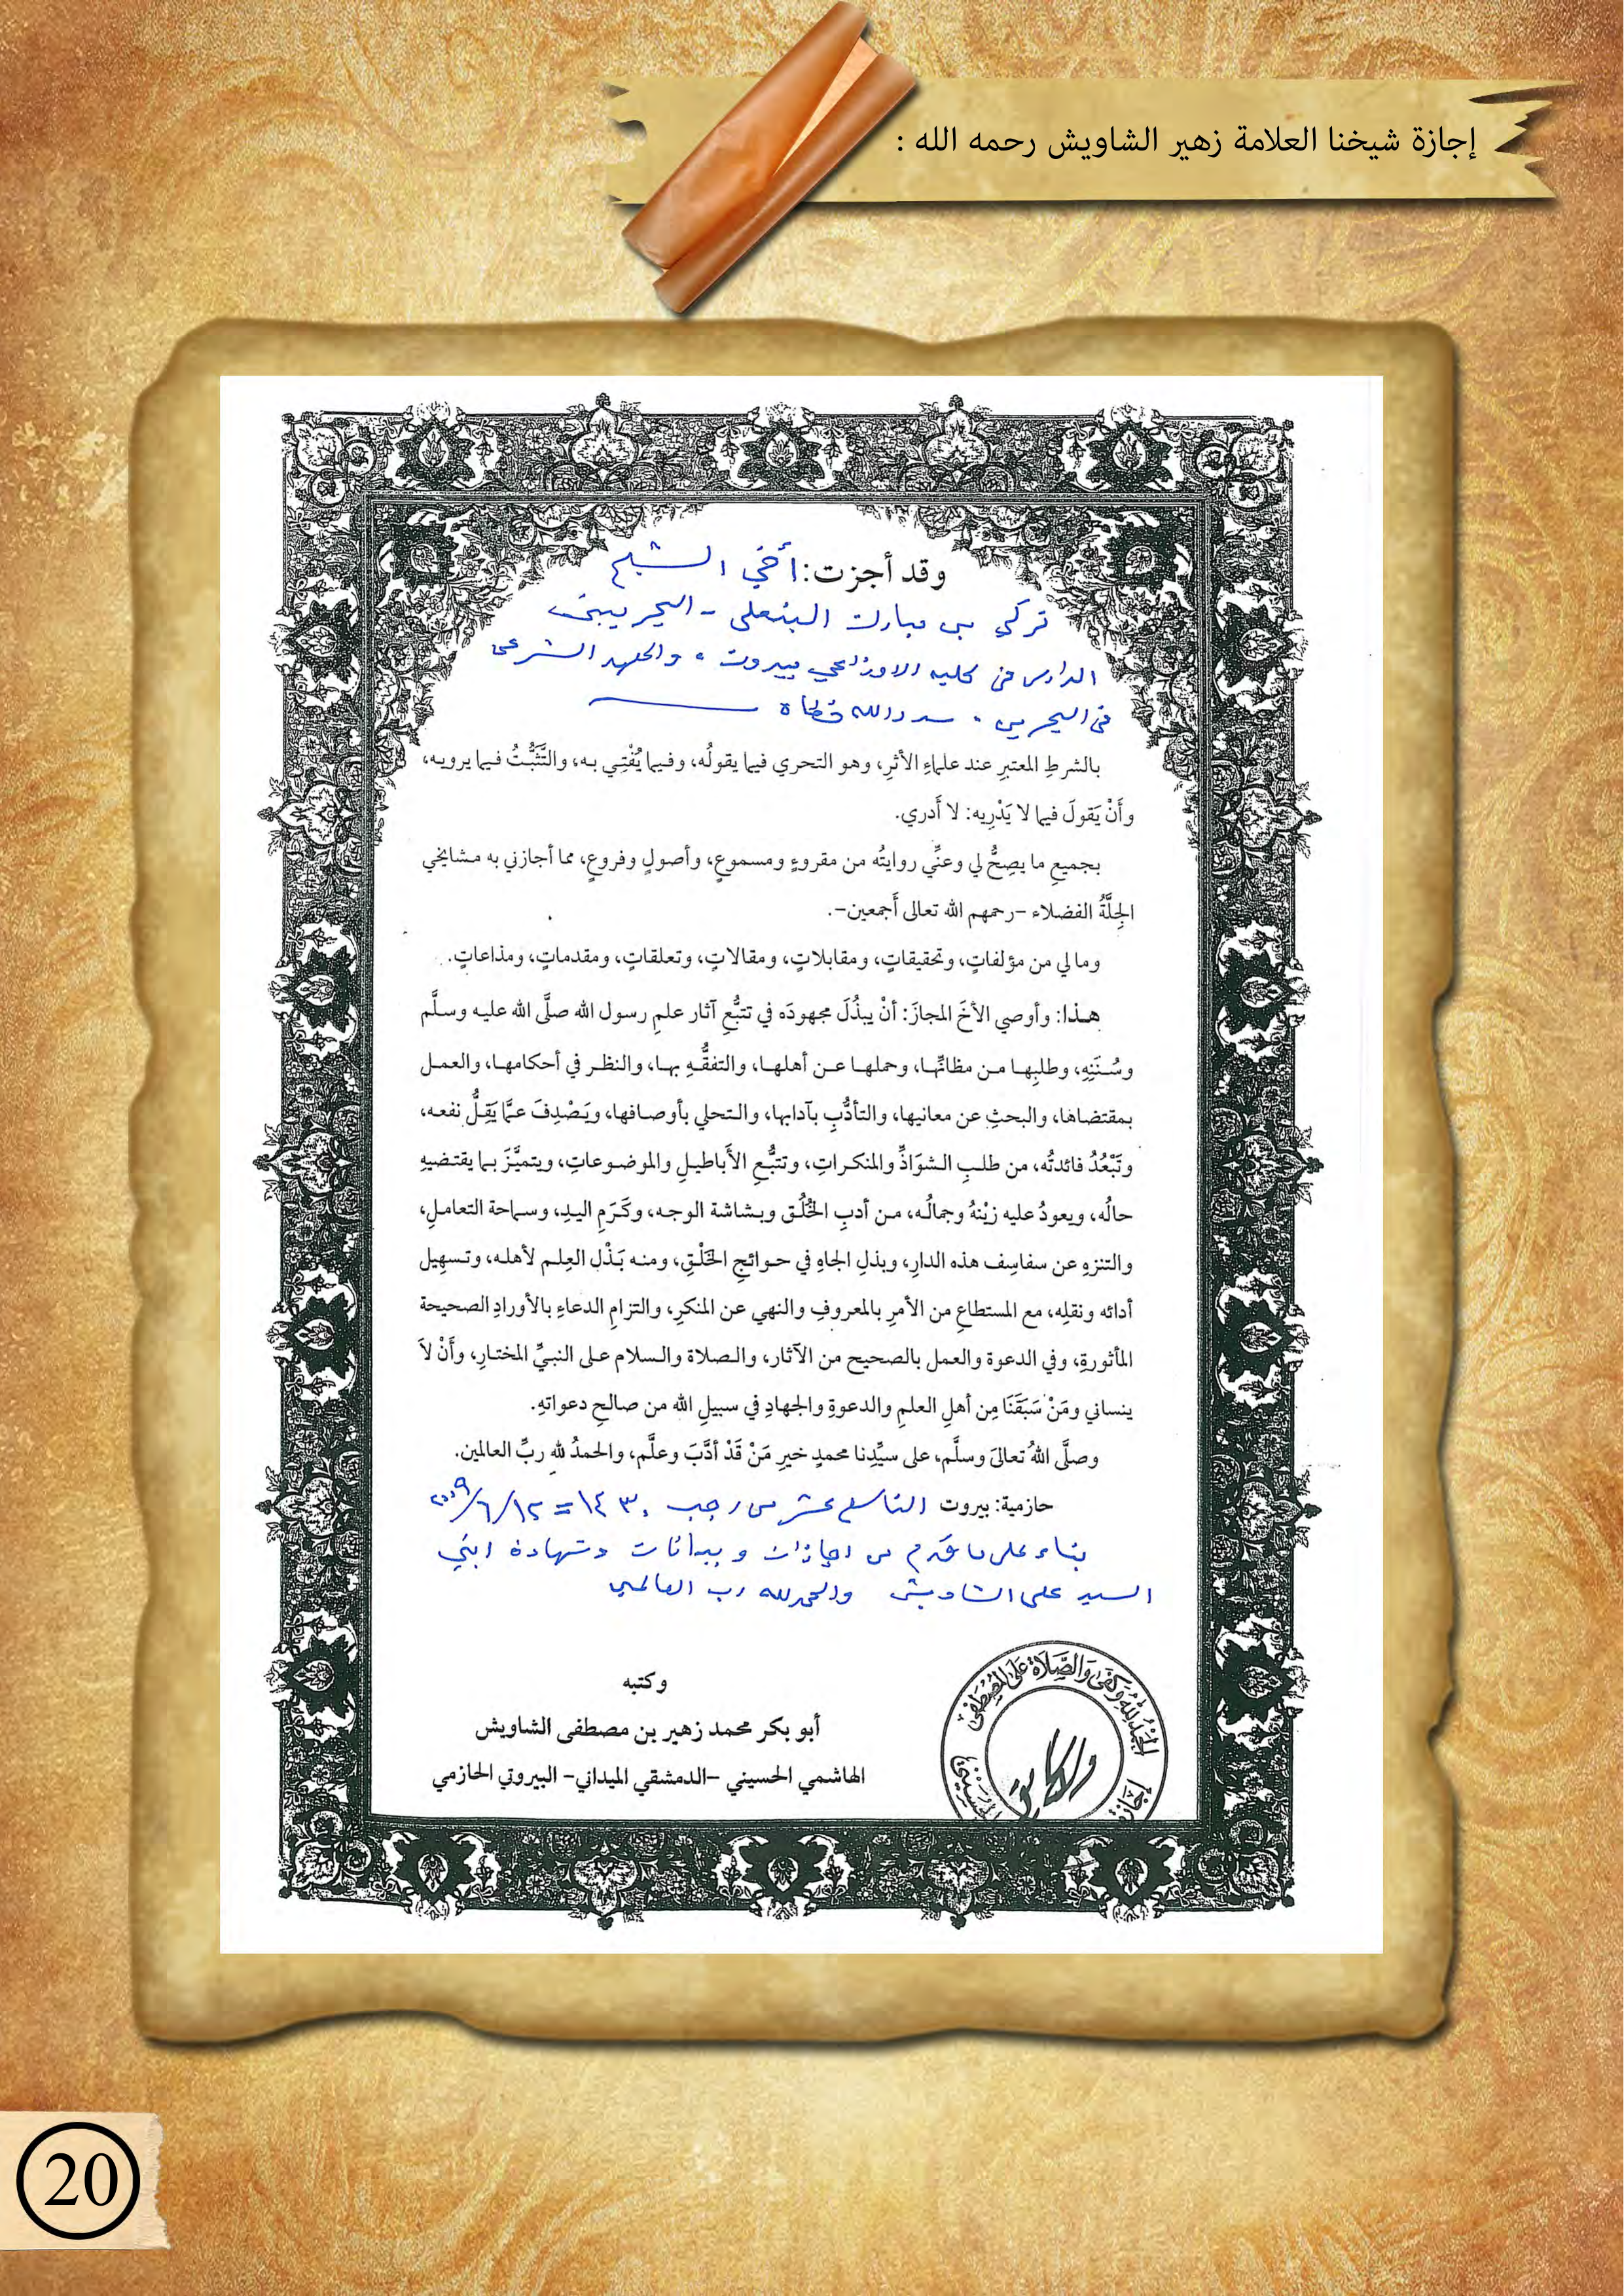 إجازة شيخنا العلامة زهير الشاويش رحمه الله :
وقد أجزت: أخي الشيخ
تركي بن مبارك البنعلي - البحريني
الدارس في كلية الاوزاعي ببيروت، والمعهد الشرعي
في البحرين، سدد الله خطاه
بالشرطِ المعتبرِ عند علماءِ الأثرِ، وهو التحري فيما يقولُه، وفيما يُفْتِي به، والتَّثَبُّتُ فيما يرويه،
وأَنْ يَقولَ فيما لا يَدْرِيه: لا أَدري.
بجميعِ ما يصِحُّ لي وعنِّي روايتُه من مقروءٍ ومسموعٍ، وأصولٍ وفروعٍ، مما أجازني به مشايخي
الجِلَّةُ الفضلاء -رحمهم الله تعالى أَجمعين-.
وما لي من مؤلفاتٍ، وتحقيقاتٍ، ومقابلاتٍ، ومقالاتٍ، وتعلقاتٍ، ومقدماتٍ، ومذاعاتٍ.
هذا: وأوصي الأخَ المجازَ: أنْ يبذُلَ مجهودَه في تتبُّعِ آثار علمِ رسول الله صلَّى الله عليه وسلَّم
وسُنَنِهِ، وطلبِها من مظانِّها، وحملها عن أهلها، والتفقُّهِ بها، والنظر في أحكامها، والعمل
بمقتضاها، والبحثِ عن معانيها، والتأدُّبِ بآدابها، والتحلي بأوصافها، ويَصْدِفَ عمَّا يَقِلُّ نفعه،
وتَبْعُدُ فائدتُه، من طلبِ الشوَاذِّ والمنكراتِ، وتتبُّعِ الأَباطيلِ والموضوعاتِ، ويتميَّزَ بما يقتضيهِ
حالُه، ويعودُ عليه زيْنهُ وجمالُه، من أدبِ الخُلُق وبشاشة الوجه، وكَرَمِ اليدِ، وسماحة التعاملِ،
والتنزهِ عن سفاسِف هذه الدارِ، وبذلِ الجاهِ في حوائجِ الخَلْقِ، ومنه بَذْل العِلم لأهله، وتسهيل
أدائه ونقلِه، مع المستطاعِ من الأمرِ بالمعروفِ والنهي عن المنكرِ، والتزامِ الدعاءِ بالأورادِ الصحيحة
المأثورةِ، وفي الدعوة والعمل بالصحيح من الآثار، والصلاة والسلام على النبيِّ المختارِ، وأَنْ لاَ
ينساني ومَنْ سَبَقَنَا مِن أهلِ العلمِ والدعوةِ والجهادِ في سبيلِ الله من صالحِ دعواتهِ.
وصلَّى اللهُ تعالىَ وسلَّم، على سيِّدِنا محمدٍ خيرِ مَنْ قَدْ أدَّبَ وعلَّم، والحمدُ للهِ ربِّ العالمين.
حازمية: بيروت التاسع عشر من رجب ١٤٣٠ = ١٢/٦/٢٠٠٩
بناء على ما تقدم من اجازات وبيانات وشهادة ابني
السيد علي الشاويش والحمد لله رب العالمين
وكتبه
أبو بكر محمد زهير بن مصطفى الشاويش
الهاشمي الحسيني -الدمشقي الميداني- البيروتي الحازمي
الحمد لله وكفى والصلاة على المصطفى
إجازة
20